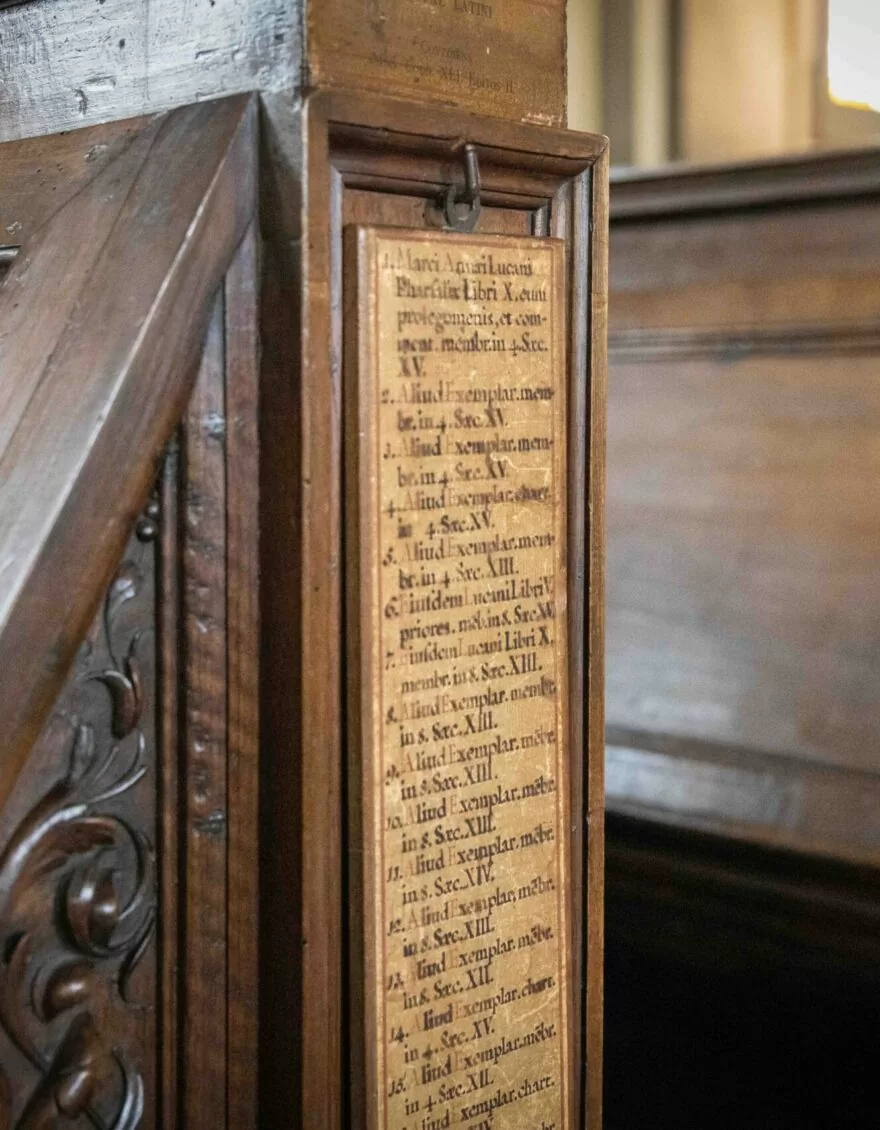 LATINI
1. Marci Annæi Lucani
Pharsaliæ Libri X, cum
prolegomenis, et com-
ment. membr. in 4. Sæc.
XV.
2. Aliud Exemplar. mem-
br. in 4. Sæc. XV.
3. Aliud Exemplar. mem-
br. in 4. Sæc. XV.
4. Aliud Exemplar. chart.
in 4. Sæc. XV.
5. Aliud Exemplar. mem-
br. in 4. Sæc. XIII.
6. Eiusdem Lucani Libri V.
priores. mēb. in 8. Sæc. XV.
7. Eiusdem Lucani Libri X.
membr. in 8. Sæc. XIII.
8. Aliud Exemplar. membr.
in 8. Sæc. XIII.
9. Aliud Exemplar. mēbr.
in 8. Sæc. XIII.
10. Aliud Exemplar. mēbr.
in 8. Sæc. XIII.
11. Aliud Exemplar. mēbr.
in 8. Sæc. XIV.
12. Aliud Exemplar. mēbr.
in 8. Sæc. XIII.
13. Aliud Exemplar. mēbr.
in 8. Sæc. XII.
14. Aliud Exemplar. chart.
in 4. Sæc. XV.
15. Aliud Exemplar. mēbr.
in 4. Sæc. XII.
Aliud Exemplar. chart.